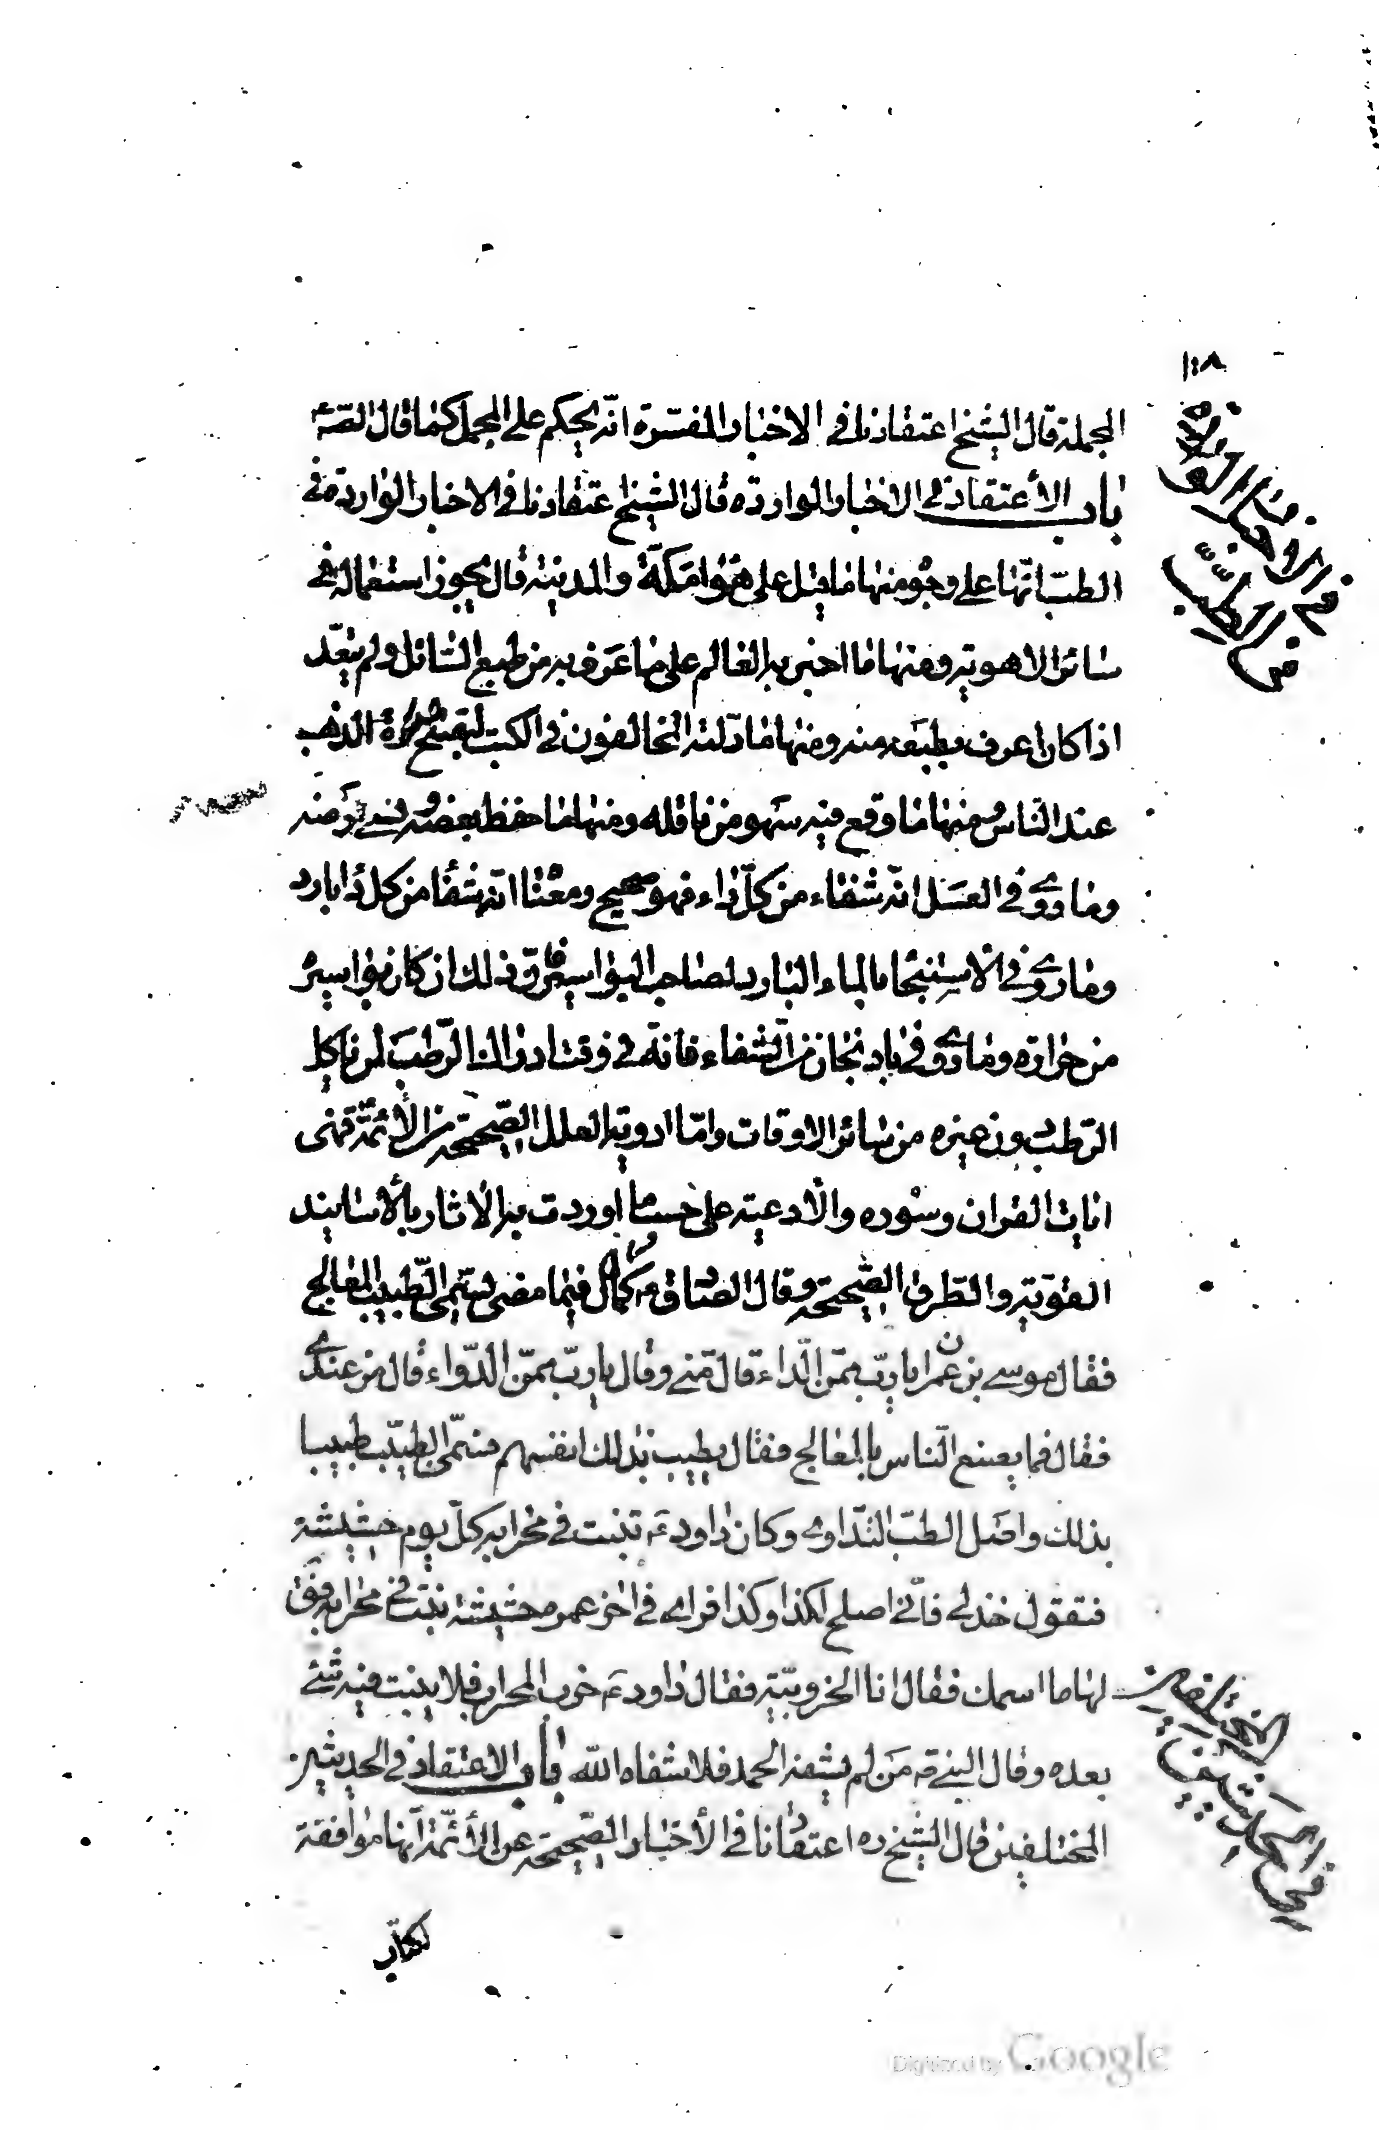 ١٠٨
المجملة قال الشيخ اعتقادنا في الاخبار المفسرة انّه يحكم على المجمل كما قال الصّه
باب الأعتقاد في الاخبار الوارده قال الشيخ اعتقادنا في الاخبار الواردة في
الطبّ انّها على وجوه منها ما قيل على هوا مكّة والمدينة قال يجوز استعماله في
سائر الاهوية ومنها ما اخبر به العالم على ما عرف به من طبع السّائل ولم يتعدّ
اذا كان اعرف بطبعه منه ومنها ما دلّسه المخالفون في الكتب لتقبيح صورة المذهب
عند النّاس ومنها ما وقع فيه سهو من ناقله ومنها ما حفظ بعضه ونسى بعضه
وما روى في العسل انّه شفاء من كلّ داء فهو صحيح ومعناه انّه شفا من كل دا بارد
وما روى في الاستنجا بالماء البارد لصاحب البواسير فان ذلك ان كان بواسيره
من حرارة وما روى في بادنجان من الشفاء فانّه في وقت ادراك الرّطب لمن ياكل
الرّطب دون غيره من سائر الاوقات وامّا ادوية العلل الصّحيحة من الأئمّة فهى
ايات القران وسوره والادعية على حسب ما اوردت به الاثار بالأسانيد
القويّة والطّرق الصّحيحة وقال الصّادق ع كان فيما مضى يسمّى الطّبيب المعالج
فقال موسى بن عمران يا ربّ ممّن الدّاء قال منّى وقال يا ربّ ممّن الدّواء قال من عندى
فقال فما يصنع النّاس بالمعالج فقال يطيب بذلك انفسهم فسمّى الطبيب طبيبا
بذلك واصل الطبّ التّداوى وكان داود ع تنبت في محرابه كلّ يوم حشيشة
فتقول خذنى فانّى اصلح لكذا وكذا فراى في اخر عمره حشيشة نبتت في محرابه فق
لها ما اسمك فقال انا الخروبيّة فقال داود ع خرب المحراب فلا ينبت فيه شئ
بعده وقال النبى ص من لم يشفه الحمد فلا شفاه الله باب الاعتقاد في الحديثين
المختلفين قال الشيخ ره اعتقادنا في الأخبار الصّحيحة عن الأئمّة انّها موافقة
لكتاب
في الاخبار الواردة
في الطبّ
في الحديثين
المختلفين
Digitized by Google